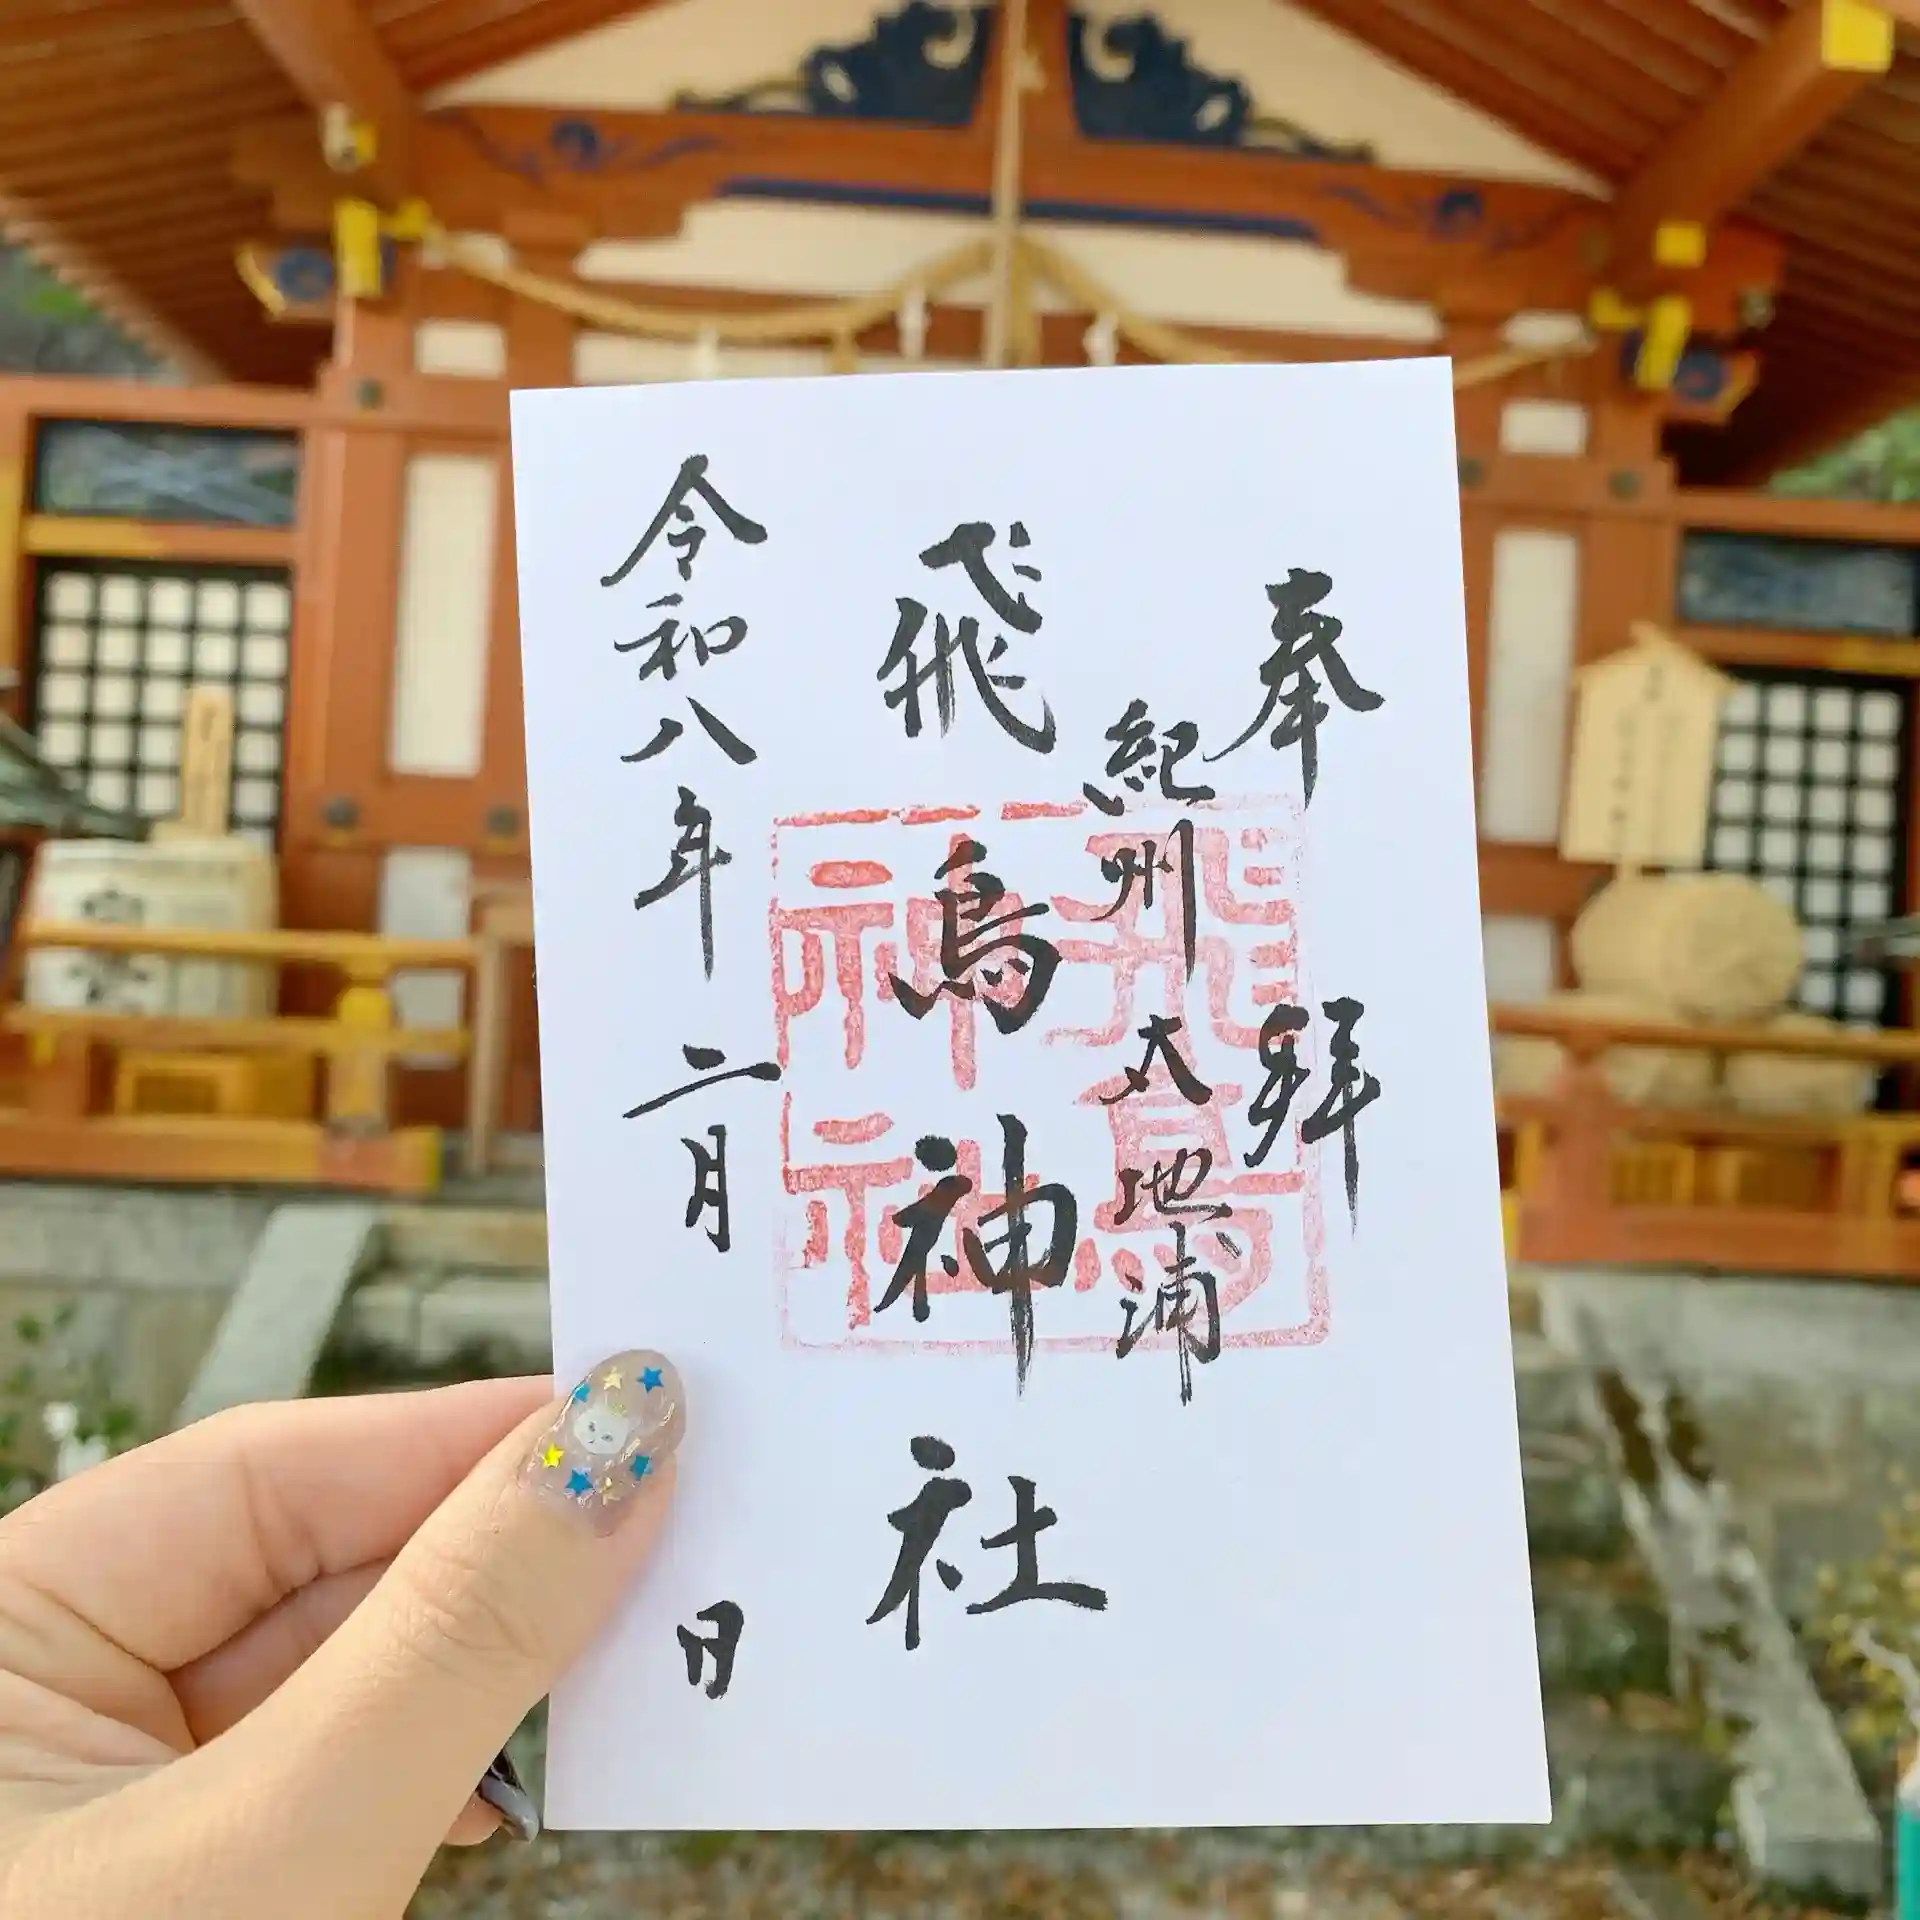 奉拝
紀州太地浦
飛鳥神社
飛鳥
神社
令和八年二月 日